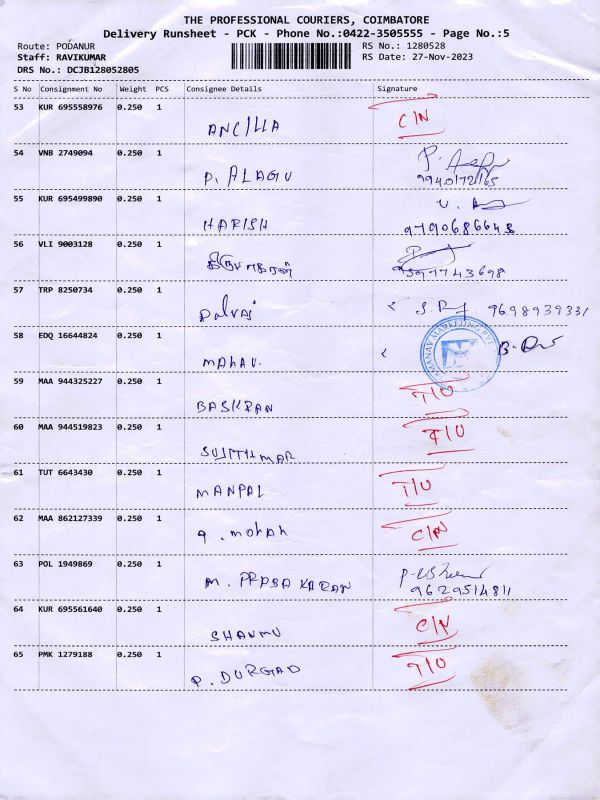 THE PROFESSIONAL COURIERS, COIMBATORE
Delivery Runsheet - PCK - Phone No.:0422-3505555 - Page No.:5
Route: PODANUR RS No.: 1280528
Staff: RAVIKUMAR RS Date: 27-Nov-2023
DRS No.: DCJB128052805
S No Consignment No Weight PCS Consignee Details Signature
53 KUR 695558976 0.250 1
ANCILLA C/N
54 VNB 2749094 0.250 1
P. ALAGU 9940172165
55 KUR 695499890 0.250 1
HARISH 9790686648
56 VLI 9003128 0.250 1
57 TRP 8250734 0.250 1
Palraj 9698939331
58 EDQ 16644824 0.250 1
MAHAV.
59 MAA 944325227 0.250 1
BASKRAN T/U
60 MAA 944519823 0.250 1
T/U
61 TUT 6643430 0.250 1
MANPAL T/U
62 MAA 862127339 0.250 1
mohan C/N
63 POL 1949869 0.250 1
9629514811
64 KUR 695561640 0.250 1
SHANMU C/N
65 PMK 1279188 0.250 1
P. DURGAD T/U